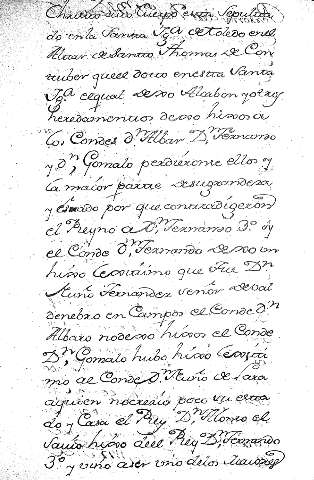 su Cuerpo esta Sepulta
do en la Santa Yg.ª de Toledo en el
Altar de Santo Thomas de Con
turber que el doto en esta Santa
Yg.ª el qual dexo Alcabon y otros
heredamientos dexo hixos a
los Condes d.n Albar D.n Fernando
y d.n Gonzalo perdieronse ellos y
la maior parte de su grandeza,
y estado por que contradigeron
el Reyno a D.n Fernando 3.º y
el Conde D.n Fernando dexo un
hixo lexitimo que fue D.n
Nuño Fernandez señor de Val
denebro en Campos el Conde d.n
Albaro no dexo hixos el Conde
D.n Gonzalo hubo hixo lexiti
mo al Conde D.n Nuño de Lara
a quien no crecio poco su esta
do y Casa el Rey D.n Alonso el
Sauio hixo del Rey D.n Fernando
3.º y vino a ser uno de los